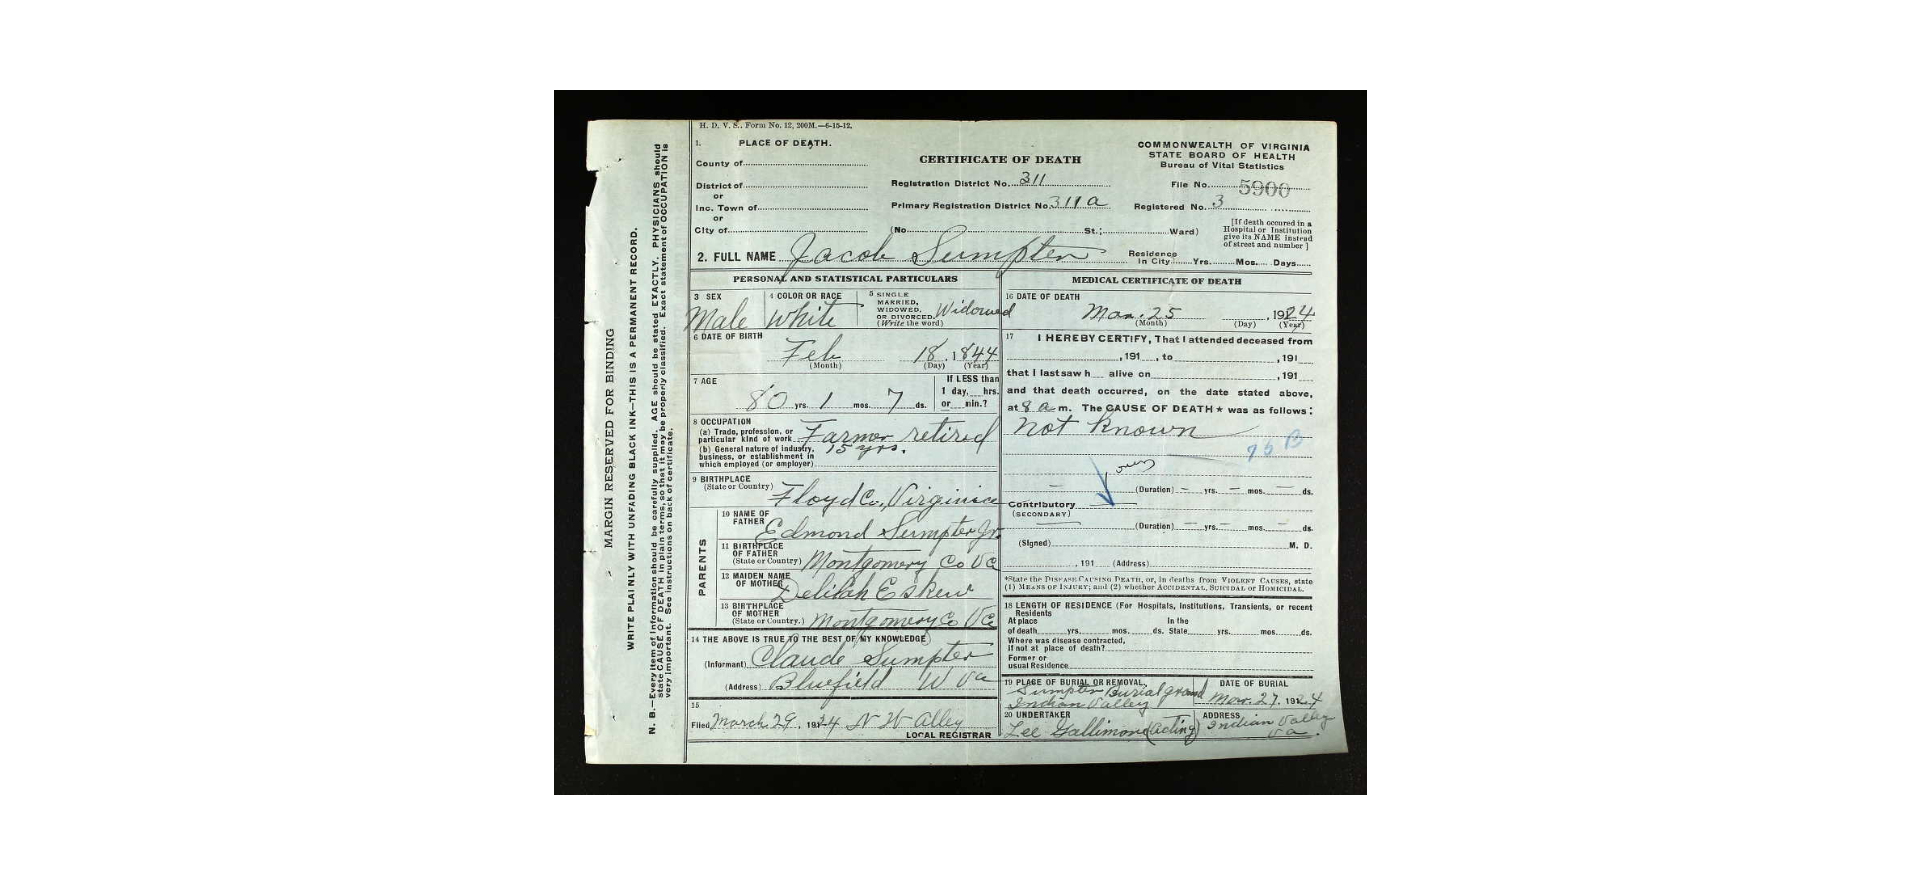 H. D. V. S., Form No. 12, 200M.—6-15-12.
1. PLACE OF DEATH.
County of
District of
or
Inc. Town of
or
City of
CERTIFICATE OF DEATH
Registration District No. 311
Primary Registration District No. 311a
(No. St.; Ward)
COMMONWEALTH OF VIRGINIA
STATE BOARD OF HEALTH
Bureau of Vital Statistics
File No. 5900
Registered No. 3
[If death occured in a
Hospital or Institution
give its NAME instead
of street and number]
2. FULL NAME Jacob Sumpter
Residence
In City Yrs. Mos. Days
PERSONAL AND STATISTICAL PARTICULARS
3 SEX
Male
4 COLOR OR RACE
White
5 SINGLE
MARRIED,
WIDOWED,
OR DIVORCED.
(Write the word)
Widowed
6 DATE OF BIRTH
Feb 18, 1844
(Month) (Day) (Year)
7 AGE
80 yrs. 1 mos. 7 ds.
If LESS than
1 day, hrs.
or min.?
8 OCCUPATION
(a) Trade, profession, or
particular kind of work
Farmer retired
15 yrs.
(b) General nature of industry,
business, or establishment in
which employed (or employer)
9 BIRTHPLACE
(State or Country)
Floyd Co, Virginia
PARENTS
10 NAME OF
FATHER
Edmond Sumpter Jr.
11 BIRTHPLACE
OF FATHER
(State or Country)
Montgomery Co Va
12 MAIDEN NAME
OF MOTHER
Delilah Eskew
13 BIRTHPLACE
OF MOTHER
(State or Country.)
Montgomery Co Va
14 THE ABOVE IS TRUE TO THE BEST OF MY KNOWLEDGE
(Informant) Claude Sumpter
(Address) Bluefield W Va
15
Filed March 29, 1924 N W Alley
LOCAL REGISTRAR
MEDICAL CERTIFICATE OF DEATH
16 DATE OF DEATH
Mar. 25, 1924
(Month) (Day) (Year)
17 I HEREBY CERTIFY, That I attended deceased from
, 191 , to , 191
that I last saw h alive on , 191
and that death occurred, on the date stated above,
at 8 a m. The CAUSE OF DEATH* was as follows:
Not Known
(Duration) — yrs. — mos. — ds.
Contributory
(SECONDARY)
(Duration) — yrs. — mos. — ds.
(Signed) M. D.
, 191 (Address)
*State the DISEASE CAUSING DEATH, or, in deaths from VIOLENT CAUSES, state
(1) MEANS OF INJURY; and (2) whether ACCIDENTAL, SUICIDAL or HOMICIDAL.
18 LENGTH OF RESIDENCE (For Hospitals, Institutions, Transients, or recent
Residents
At place In the
of death yrs. mos. ds. State yrs. mos. ds.
Where was disease contracted,
if not at place of death?
Former or
usual Residence
19 PLACE OF BURIAL OR REMOVAL,
Sumpter Burial ground
Indian Valley
DATE OF BURIAL
Mar. 27, 1924
20 UNDERTAKER
Lee Gallimore (Acting)
ADDRESS
Indian Valley
Va.
MARGIN RESERVED FOR BINDING
WRITE PLAINLY WITH UNFADING BLACK INK—THIS IS A PERMANENT RECORD.
N. B.—Every item of information should be carefully supplied. AGE should be stated EXACTLY. PHYSICIANS should
state CAUSE OF DEATH in plain terms, so that it may be properly classified. Exact statement of OCCUPATION is
very important. See instructions on back of certificate.